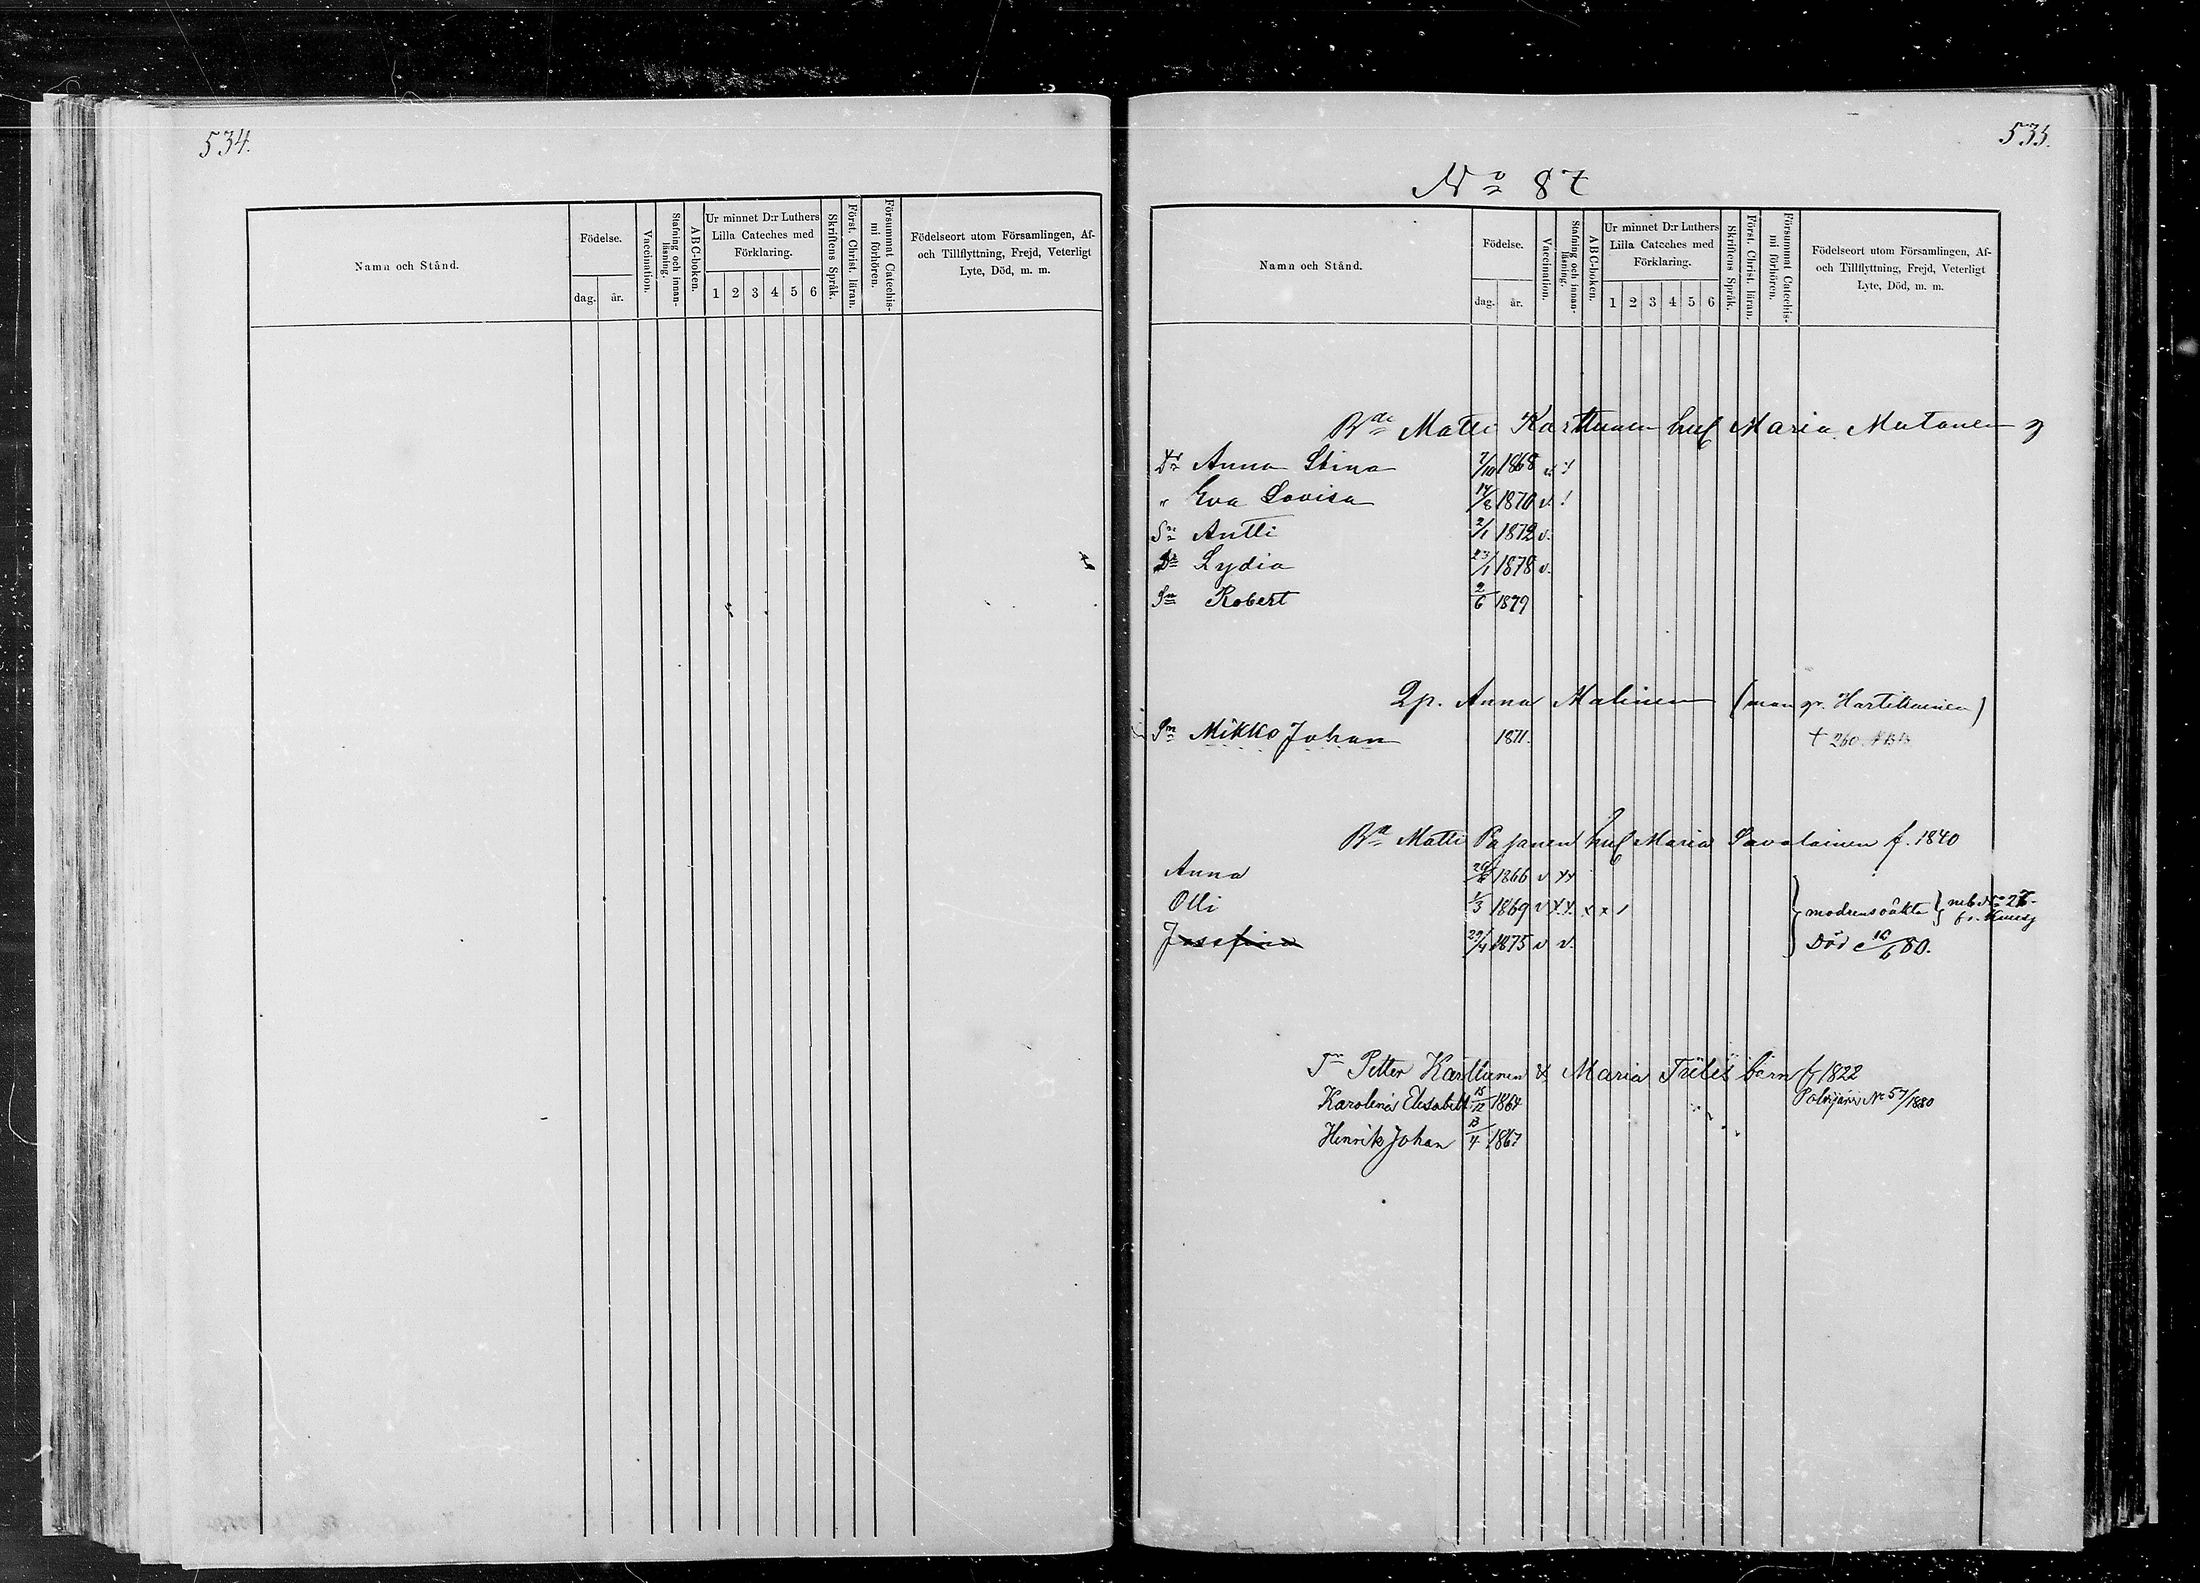 534.
Namn och Stånd.
Födelse.
dag.
år.
Vaccination.
Stafning och innan-
läsning.
ABC-boken.
Ur minnet D:r Luthers
Lilla Cateches med
Förklaring.
1 2 3 4 5 6
Skriftens Språk.
Först. Christ. läran.
Försummat Catechis-
mi förhören.
Födelseort utom Församlingen, Af-
och Tillflyttning, Frejd, Veterligt
Lyte, Död, m. m.
535.
No 87
Namn och Stånd.
Födelse.
dag.
år.
Vaccination.
Stafning och innan-
läsning.
ABC-boken.
Ur minnet D:r Luthers
Lilla Cateches med
Förklaring.
1 2 3 4 5 6
Skriftens Språk.
Först. Christ. läran.
Försummat Catechis-
mi förhören.
Födelseort utom Församlingen, Af-
och Tillflyttning, Frejd, Veterligt
Lyte, Död, m. m.
Bde Matti Karttunen huf Maria Mutanen
Dr Anna Stina 7/10 1868 v !
" Eva Lovisa 14/8 1870 v. !
Sn Antti 2/1 1872 v.
Dr Lydia 23/1 1878 v.
Sn Robert 2/6 1879
Qp. Anna Malinen (man gr. Hartikainen)
Sn Mikko Johan 1871. † 260
Bd Matti Pajanen huf Maria Savolainen f. 1840
Anna 1866 v xx
Olli 1/3 1869 v x.x. x x 1 modrens oäkta No 27
Josefina 29/4 1875 v v. Död 10/6 80.
Petter Karttunen & Maria barn f 1822
Karolina Elisabet 15/12 1864 Polvijärvi No 57/1880
Henrik Johan 13/4 1867